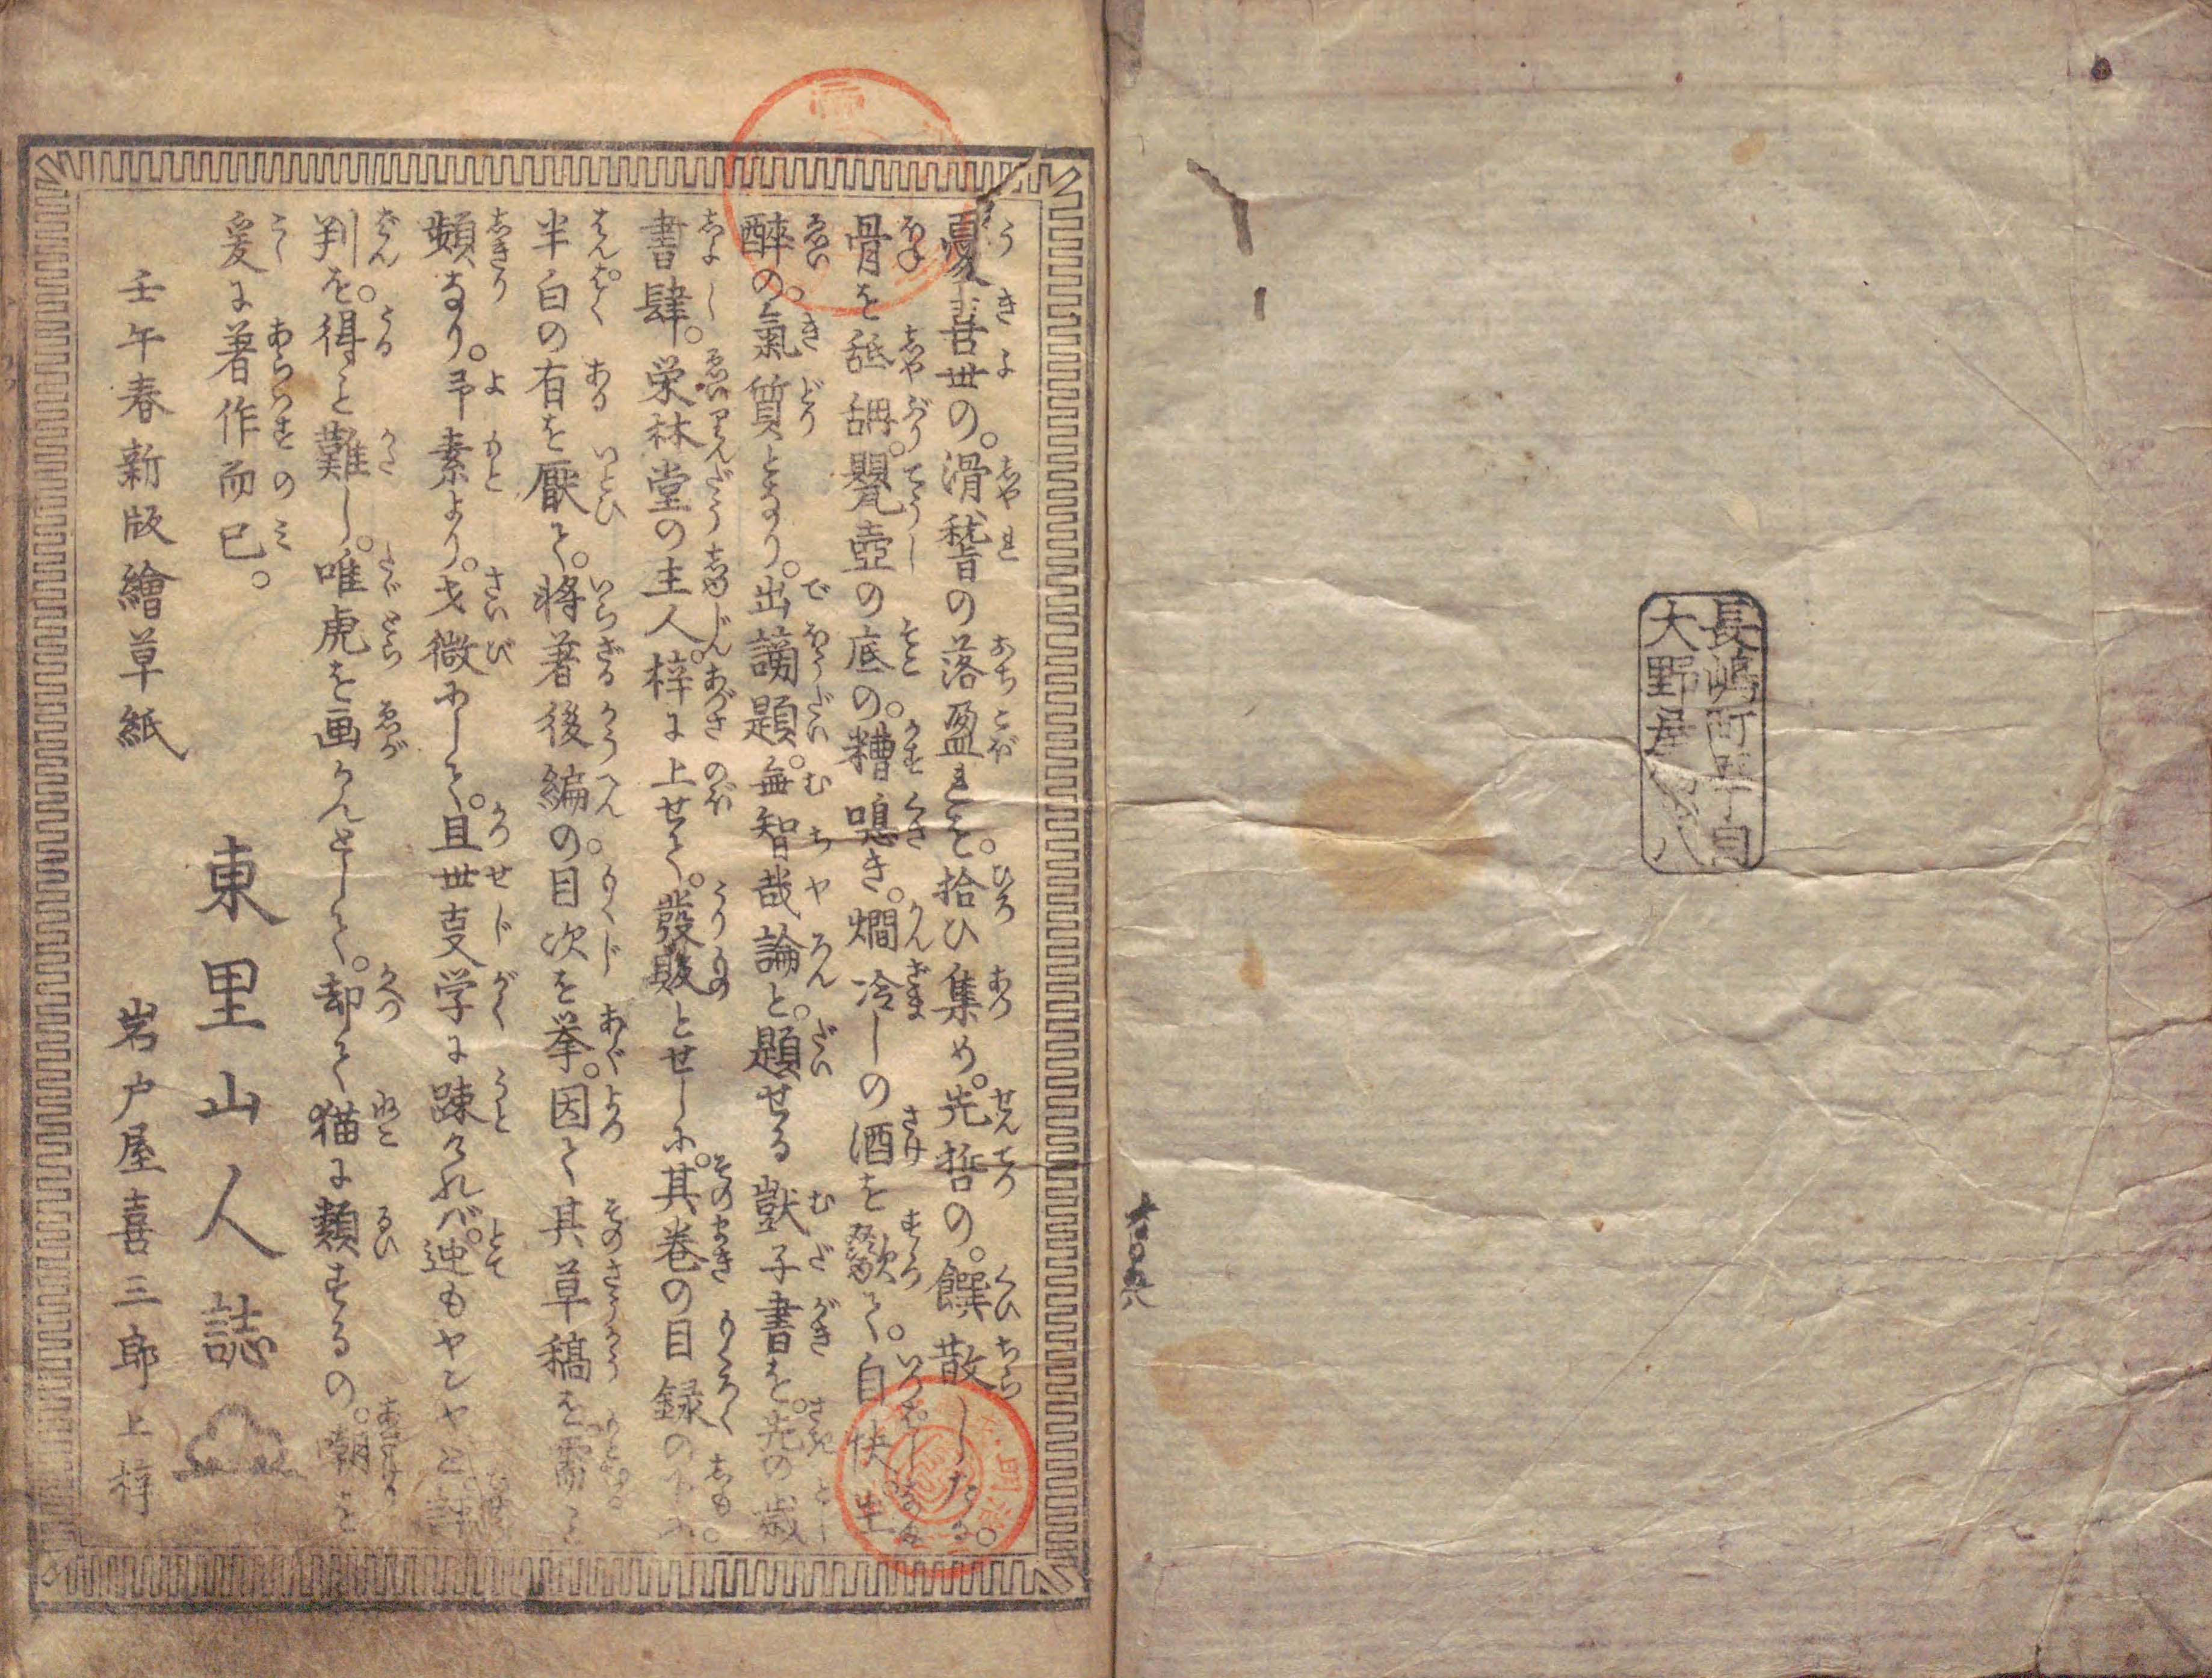 長嶋町五丁目
大野屋惣八
憂喜世の。滑稽の落盈れを。拾ひ集め。先哲の。饌散したる。
骨を舐䑛。甖壺の底の。糟嗅き。燗冷しの酒を歠て。自快生
醉の氣質となり。出謗題。無智哉論と。題せる獃子書を。先の歳
書肆。栄林堂の主人。梓に上せて。發販とせしに。其巻の目録の下へ
半白の有を厭て。將著後編の目次を挙。因て其草稿を需こと
頻なり。予素より。才微にして。且世事学に疎ければ。迚もヤンヤと
判を。得こと難し。唯虎を画かんとして。却て猫に類するの。嘲を
爰に著作而已。
東里山人誌
壬午春新版繪草紙
岩戸屋喜三郎上梓